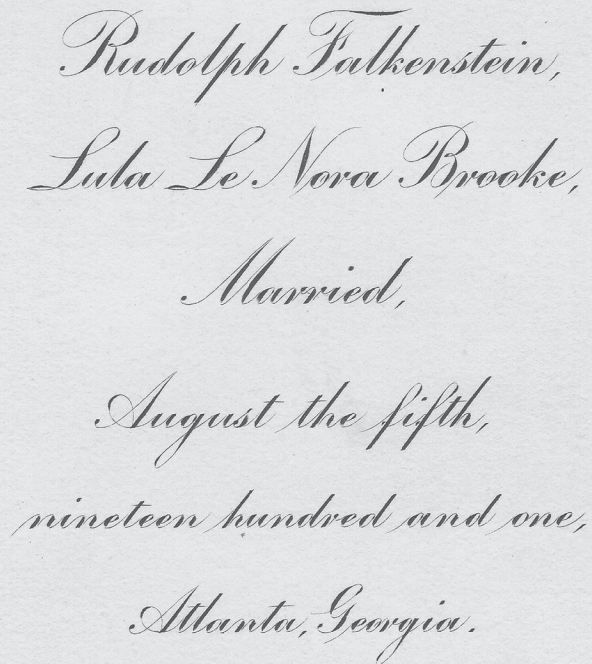 Rudolph Falkenstein,
Lula Le Nora Brooke,
Married,
August the fifth,
nineteen hundred and one,
Atlanta, Georgia.